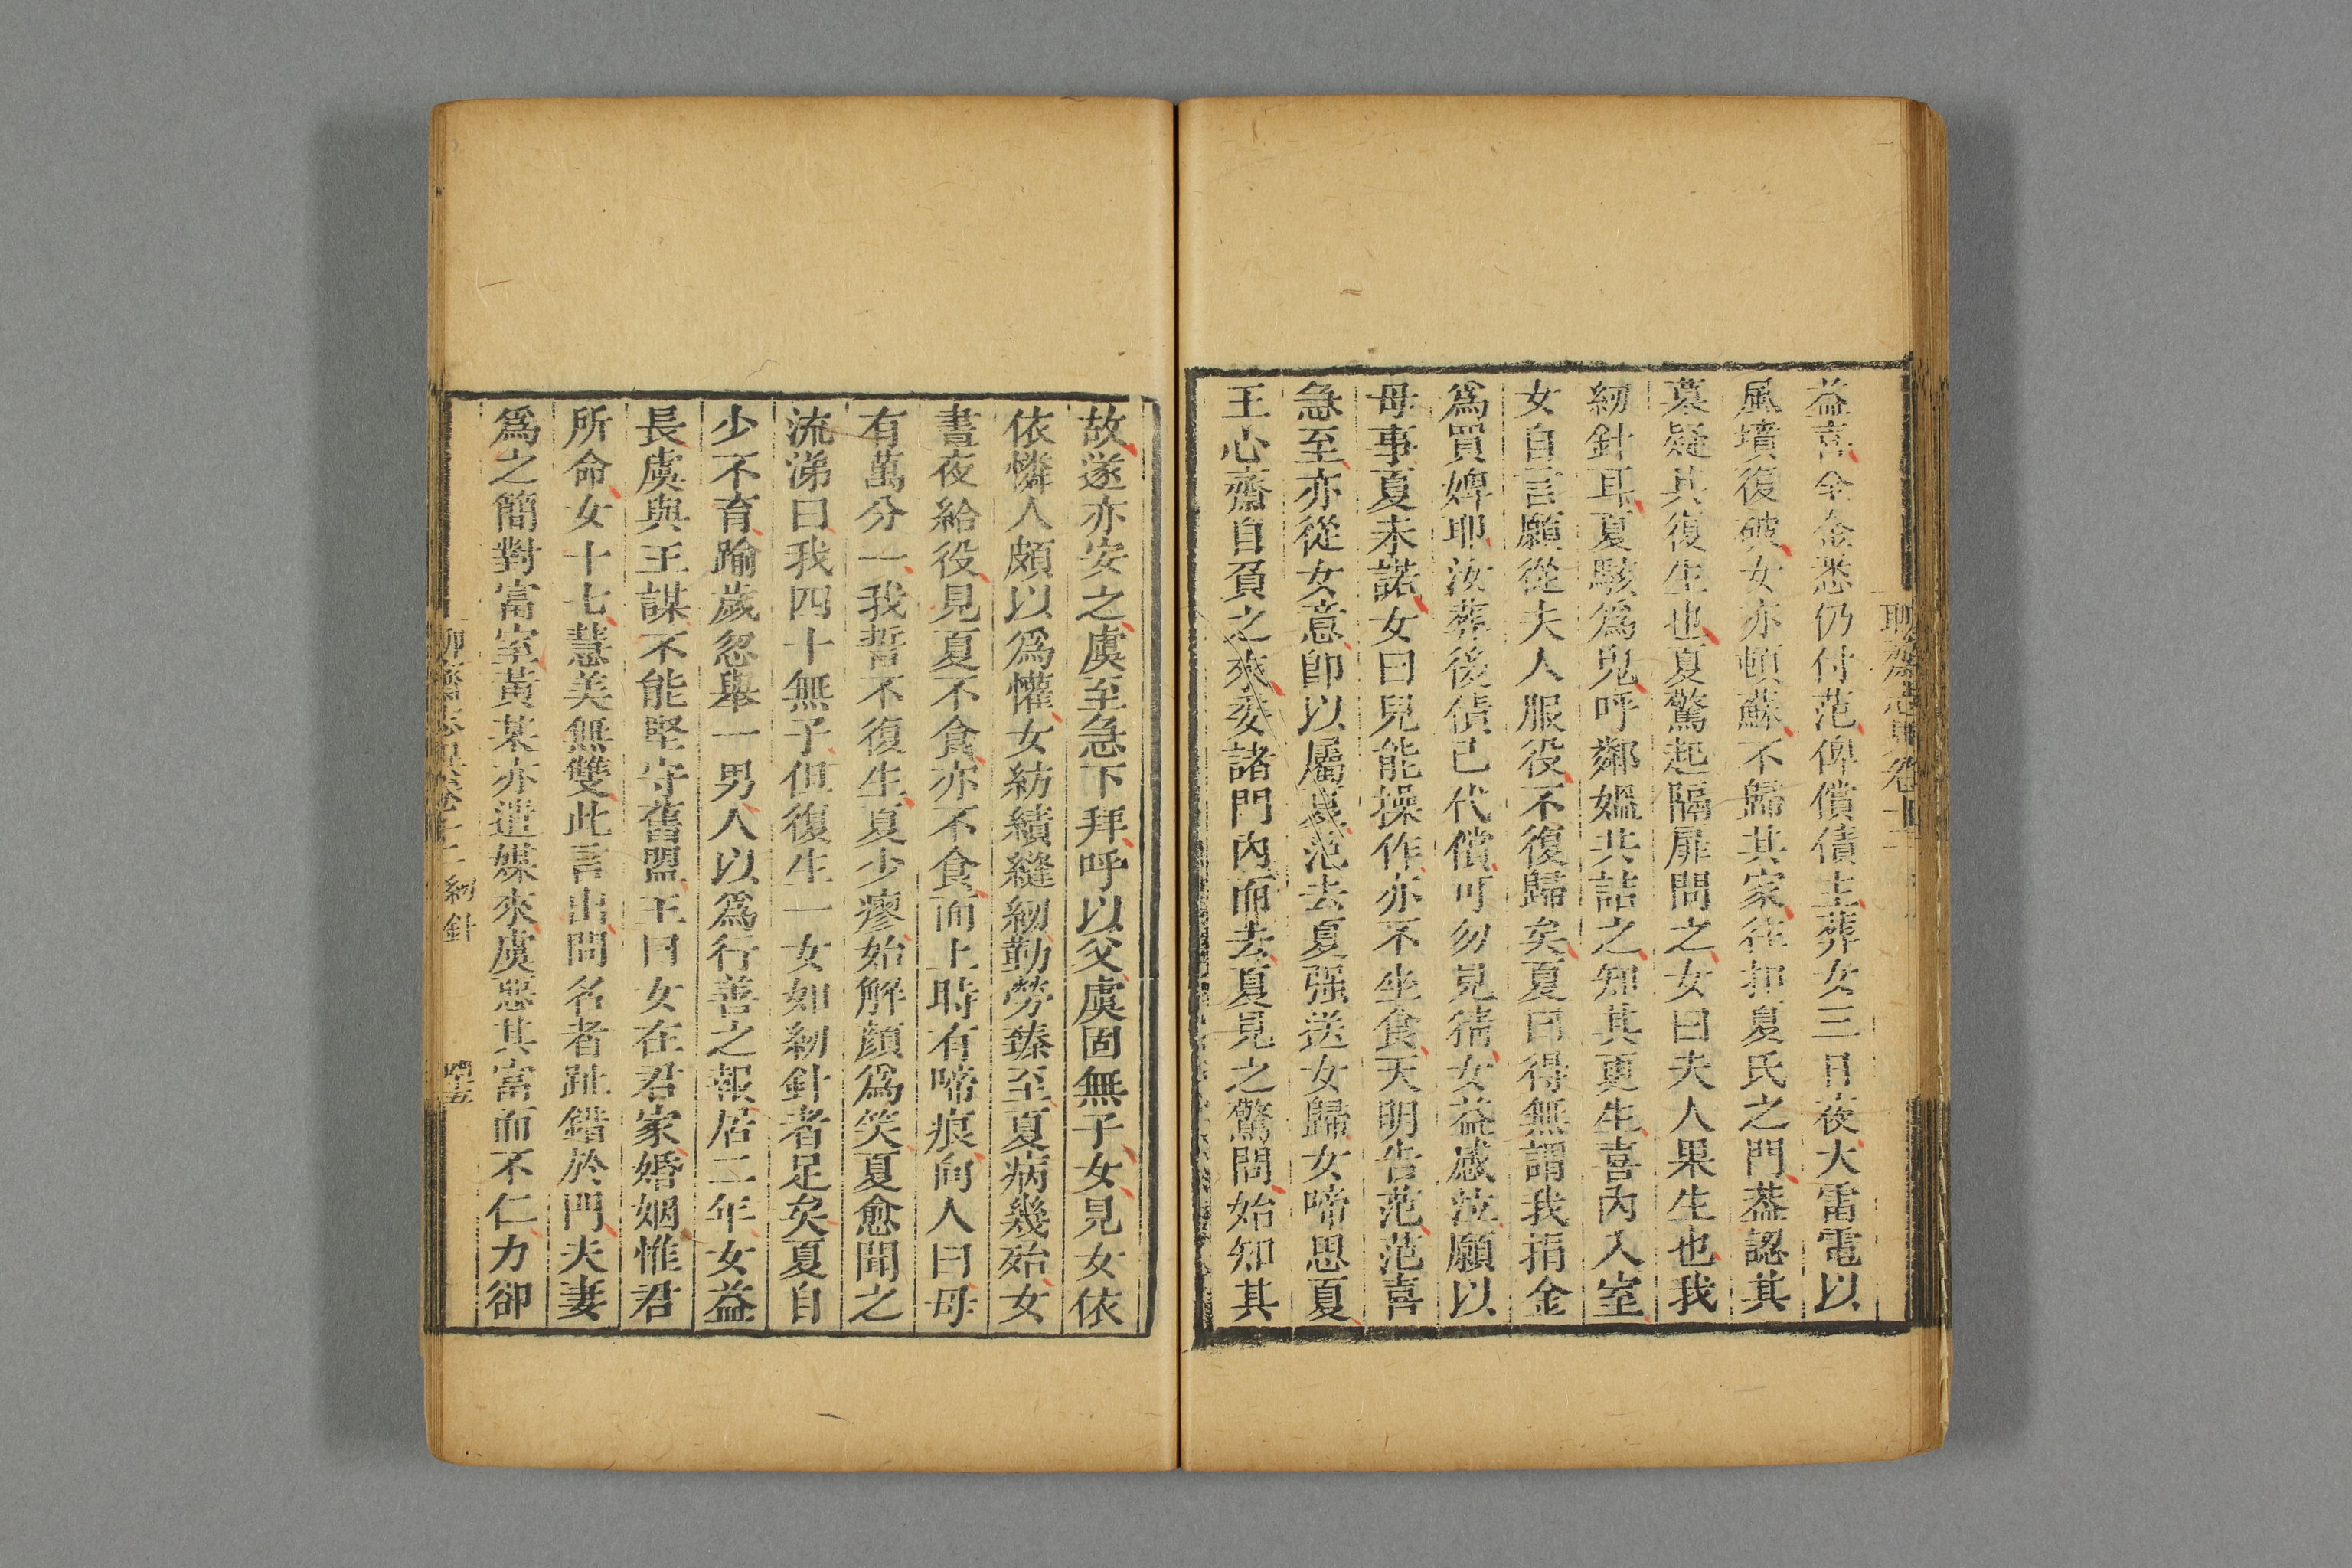 益喜全金悉仍付范俾償債主葬女三日夜大雷電以
風墳復破女亦頓蘇不歸其家往扣夏氏之門葢認其
墓疑其復生也夏驚起隔扉問之女曰夫人果生也我
紉針耳夏駭爲鬼呼鄰媼共詰之知其更生喜內入室
女自言願從夫人服役不復歸矣夏曰得無謂我捐金
爲買婢耶汝葬後債已代償可勿見猜女益感泣願以
母事夏未諾女曰兒能操作亦不坐食天明告范范喜
急至亦從女意卽以屬夏范去夏强送女歸女啼思夏
王心齋自負之來委諸門內而去夏見之驚問始知其
故遂亦安之虞至急下拜呼以父虞固無子女見女依
依憐人頗以爲懽女紡績縫紉勤勞臻至夏病幾殆女
晝夜給役見夏不食亦不食面上時有啼痕向人曰母
有萬分一我誓不復生夏少瘳始解顏爲笑夏愈聞之
流涕曰我四十無子但復生一女如紉針者足矣夏自
少不育踰歲忽舉一男人以爲行善之報居二年女益
長虞與王謀不能堅守舊盟王曰女在君家婚姻惟君
所命女十七慧美無雙此言出問名者趾錯於門夫妻
爲之簡對富室黃某亦遣媒來虞惡其富而不仁力卻
紉針